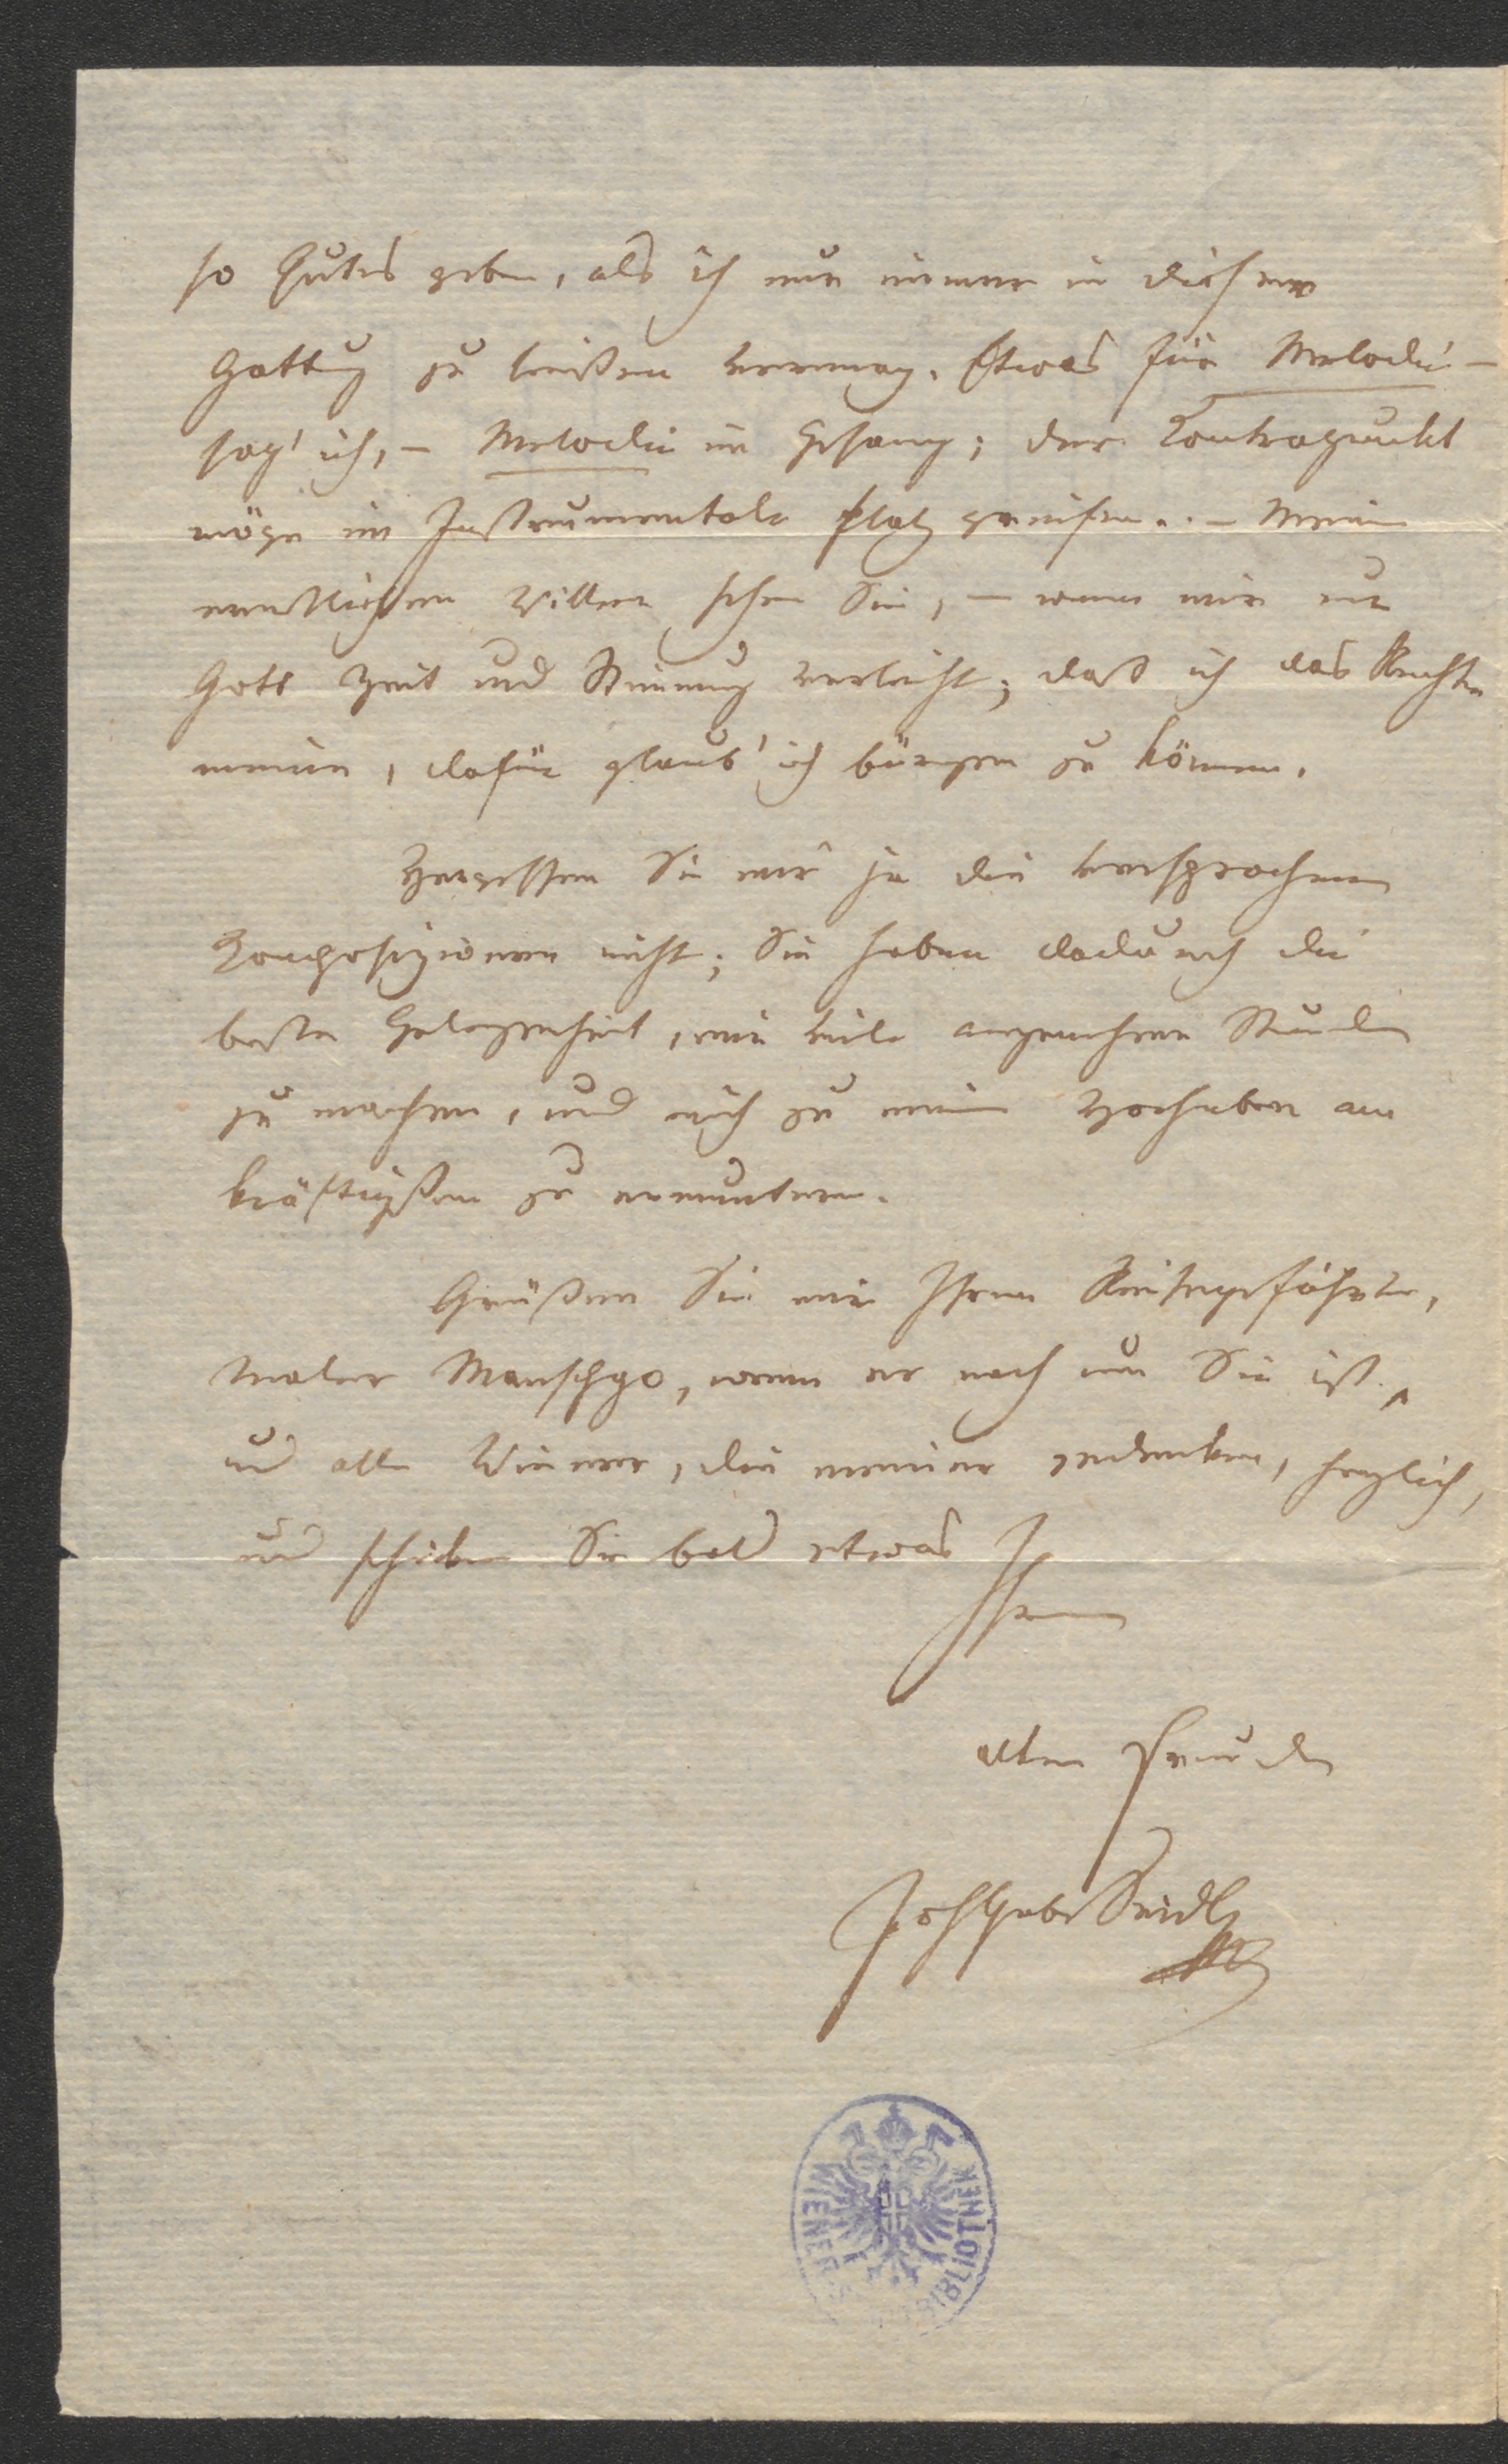 so Gutes geben, als ich nur immer in dieser
Gattung zu leisten vermag. Etwas für Melodie –
sag' ich, – Melodie im Gesang; der Contrapunkt
möge im Instrumentale Platz greifen. – Meinen
ernstlichen Willen sehen Sie, – wenn mir nur
Gott Zeit und Stimmung verleiht; daß ich das Rechte
meine, dafür glaub' ich bürgen zu können.
Vergessen Sie mir ja die versprochenen
Composizionen nicht; Sie haben dadurch die
beste Gelegenheit, mir viele angenehme Stunden
zu machen, und mich zu meinem Vorhaben am
kräftigsten zu ermuntern.
Grüßen Sie mir Ihren Reisegefährten,
Maler Manschgo, wenn er noch um Sie ist,
und alle Wiener, die meiner gedenken, herzlich,
und schicken Sie bald etwas
Ihrem
alten Freunde
Joh Gab Seidl
WIENER BIBLIOTHEK